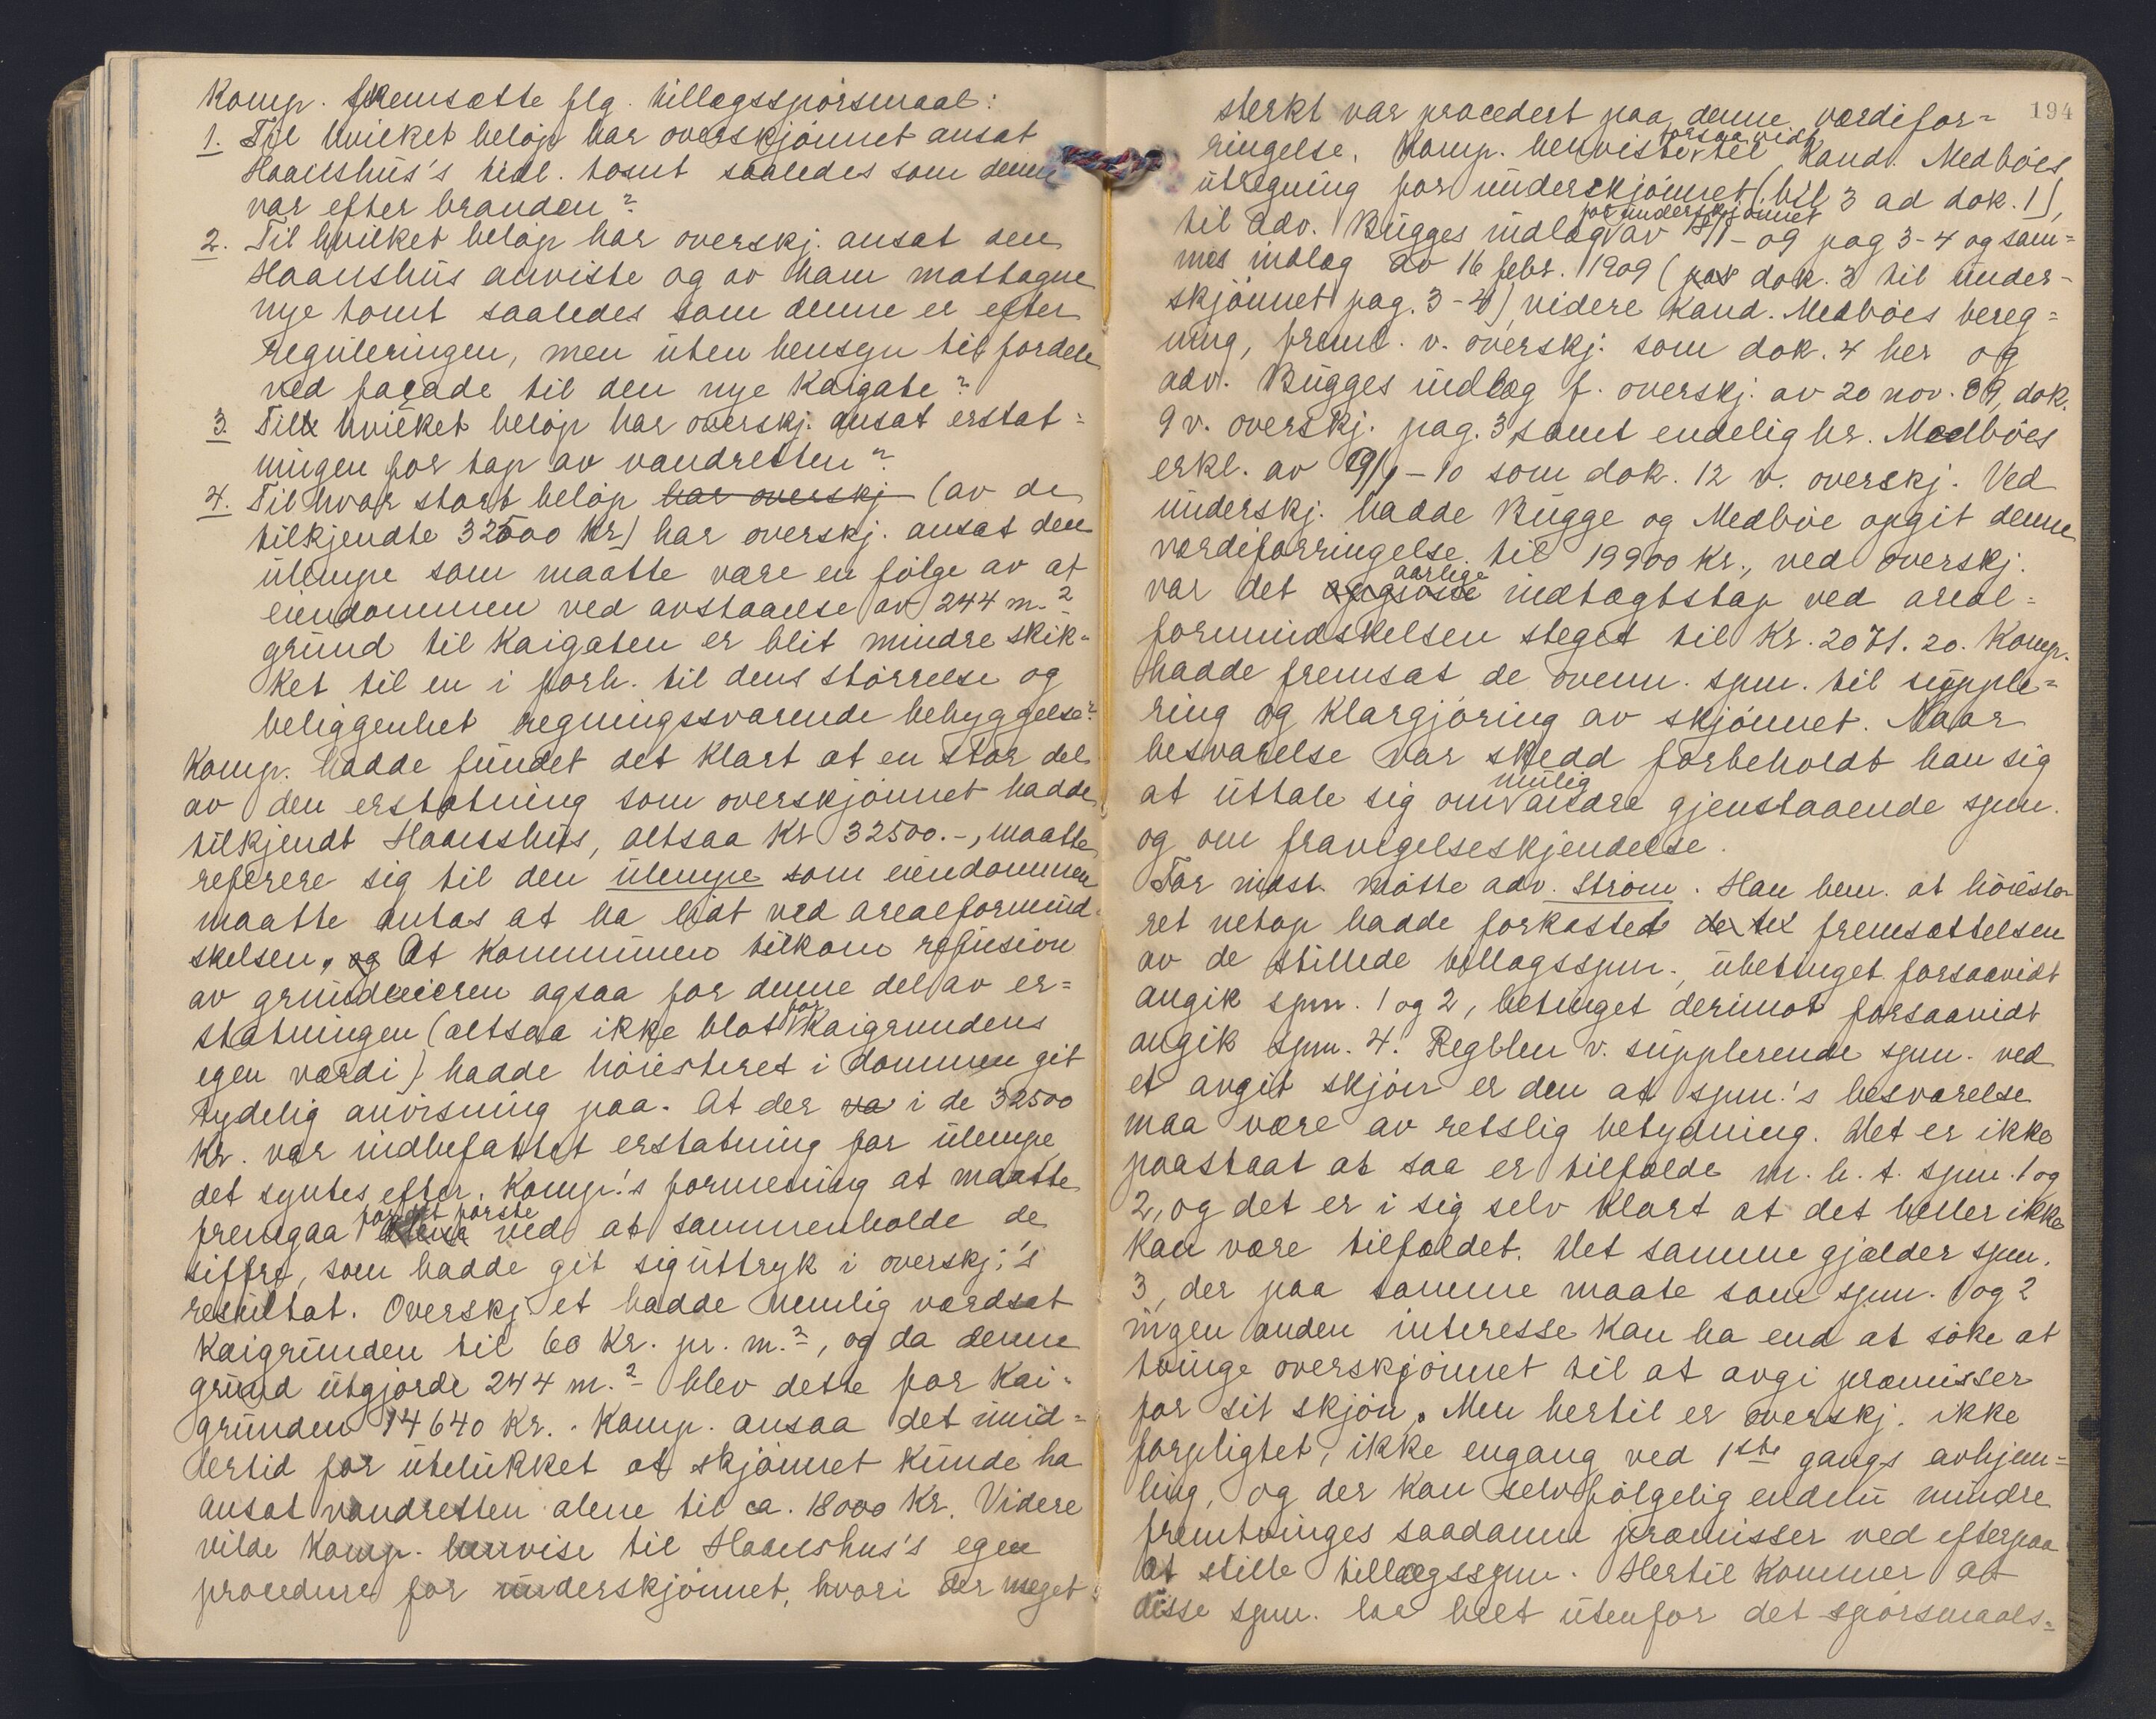 Komp. fremsatte flg. tillægsspørsmaal:
1. Til hvilket beløp har overskjønnet ansat
Haanshus's tidl. tomt saaledes som denne
var efter branden?
2. Til hvilket beløp har overskj. ansat den
Haanshus anviste og av ham mottagne
nye tomt saaledes som denne er efter
reguleringen, men uten hensyn til fordele
ved façade til den nye Kaigate?
3. Till hvilket beløp har overskj. ansat erstat=
ningen for tap av vandretten?
4. Til hvor stort beløp har overskj (av de
tilkjendte 32500 Kr) har overskj. ansat den
ulempe som maatte være en følge av at
eiendommen ved avstaaelse av 244 m.²
grund til Kaigaten er blit mindre skik=
ket til en i forh. til dens størrelse og
beliggenhet regningssvarende bebyggelse?
Komp. hadde fundet det klart at en stor del
av den erstatning som overskjønnet hadde
tilkjendt Haanshus, altsaa Kr 32500.-, maatte
referere sig til den ulempe som eiendommen
maatte antas at ha lidt ved arealformind
skelsen, og At kommunen tilkom refusion
av grundeieren ogsaa for denne del av er=
statningen (altsaa ikke blot for Kaigrundens
egen værdi) hadde høiesteret i dommen git
tydelig anvisning paa. At der va i de 32500
Kr. var indbefattet erstatning for ulempe
det syntes efter Komp.'s formening at maatte
fremgaa for det første ved at sammenholde de
siffre, som hadde git sig uttryk i overskj.'s
resultat. Overskj et hadde nemlig værdsat
Kaigrunden til 60 Kr. pr. m.², og da denne
grund utgjorde 244 m.² blev dette for Kai=
grunden 14640 Kr. . Komp. ansaa det imid=
lertid for utelukket at skjønnet kunde ha
ansat vandretten alene til ca. 18000 Kr. Videre
vilde Komp. henvise til Haanshus's egen
procedure for underskjønnet, hvori der meget
194
sterkt var procedert paa denne værdifor=
ringelse. Komp. henviste forsaavidt til Kand. Medbøes
utregning for underskjønnet (bil 3 ad dok. 1),
til adv. Bugges indlæg for underskjønnet av og pag 3-4 og sam=
mes indlæg av 16 febr. 1909 (dok. 3 til under-
skjønnet pag. 3-4), videre Kand. Medbøes bereg=
ning, freml. v. overskj. som dok. 4 her og
adv. Bugges indlæg f. overskj. av 20 nov. 09, dok.
9 v. overskj. pag. 3, samt endelig hr. Medbøes
erkl. av 19/1-10 som dok. 12 v. overskj. Ved
underskj. hadde Bugge og Medbøe opgit denne
værdiforringelse til 19900 Kr., ved overskj.
var det aarlige indtægtstap ved areal=
formindskelsen steget til Kr. 2071.20. Komp.
hadde fremsat de ovenn. spm. til supple=
ring og klargjøring av skjønnet. Naar
besvarelse var skedd forbeholdt han sig
at uttale sig om mulig andre gjenstaaende spm.
og om fravigelseskjendelse.
For indst. møtte adv. Strøm. Han bem. at høieste
ret netop hadde forkastet fremsættelsen
av de stillede tillægsspm., ubetinget forsaavidt
angik spm. 1 og 2, betinget derimot forsaavidt
angik spm. 4. Reglen v. supplerende spm. ved
et avgit skjøn er den at spm.'s besvarelse
maa være av retslig betydning. Det er ikke
paastaat at saa er tilfælde m. h. t. spm. 1 og
2, og det er i sig selv klart at det heller ikke
kan være tilfældet. Det samme gjælder spm.
3, der paa samme maate som spm. 1 og 2
ingen anden interesse kan ha end at søke at
tvinge overskjønnet til at avgi præmisser
for sit skjøn. Men hertil er overskj. ikke
forpligtet, ikke engang ved 1ste gangs avhjem=
ling, og der kan selvfølgelig endnu mindre
fremtvinges saadanne præmisser ved efterpaa
at stille tillægsspm. Hertil kommer at
disse spm. laa helt utenfor det spørsmaals=